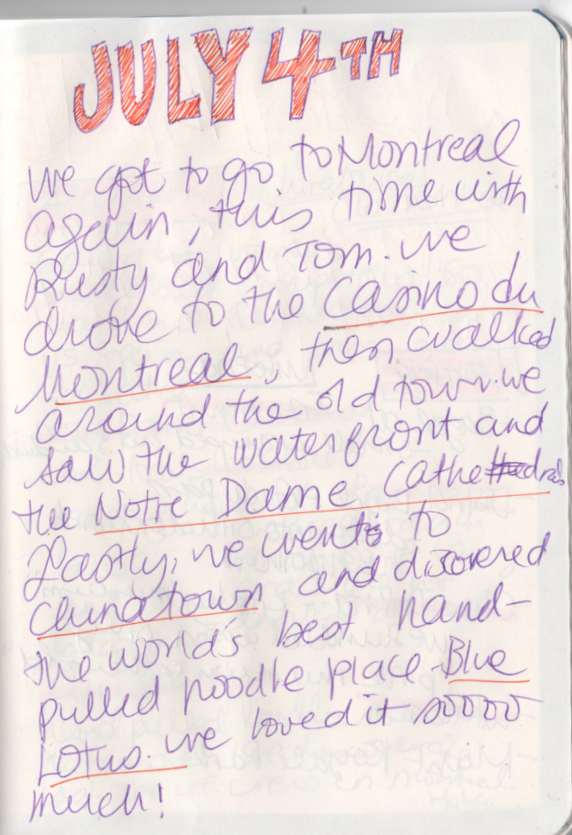 JULY 4TH
We got to go to Montreal
again, this time with
Rusty and Tom. We
drove to the Casino du
Montreal, then walked
around the old town. We
saw the waterfront and
the Notre Dame Cathedral
Lastly, we went to
Chinatown and discovered
the world's best hand-
pulled noodle place - Blue
Lotus. We loved it soooo
much!